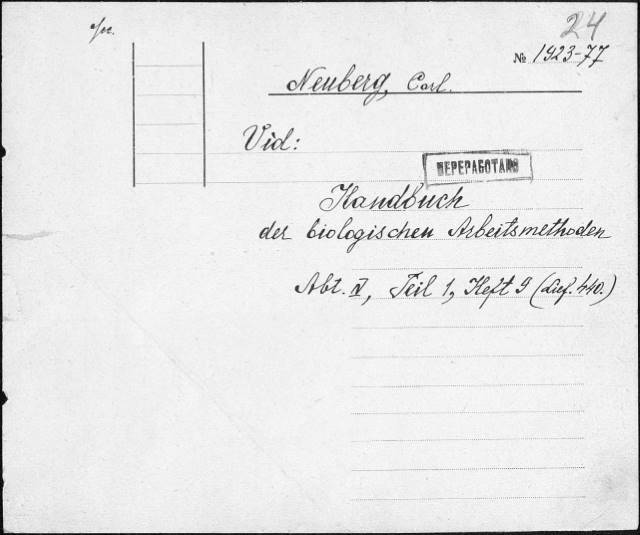 24
№ 1923-77
Neuberg, Carl.
Vid:
ПЕРЕРАБОТАНО
Handbuch
der biologischen Arbeitsmethoden
Abt. V, Teil 1, Heft 9 (Lief. 440.)